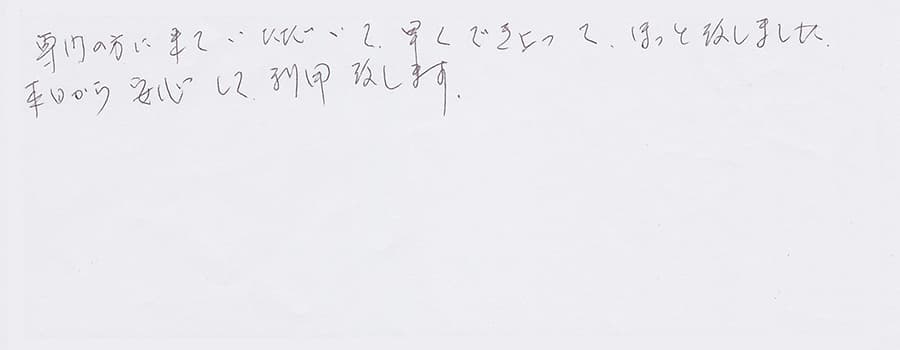 専門の方に来ていただいて、早くでき上って、ほっと致しました。
本日から安心して、利用致します。